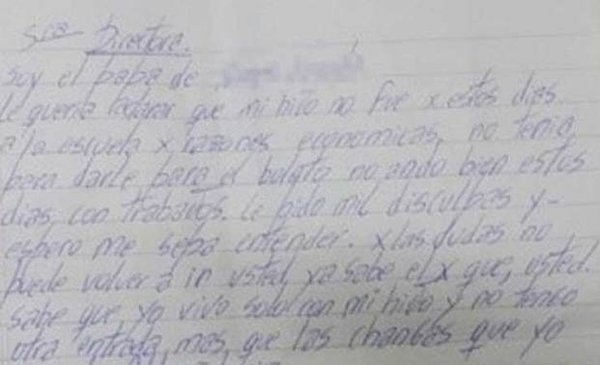 Sra Directora.
Soy el papa de
le queria aclarar que mi hijo no fue x estos dias
a la escuela x razones economicas, no tenia
para darle para el boleto no ando bien estos
dias con trabajos. Le pido mil disculpas y-
espero me sepa entender. x las dudas no
puede volver a in usted, ya sabe el x que, usted.
sabe que, yo vivo solo con mi hijo y no tengo
otra entrada, mas, que las changas que yo